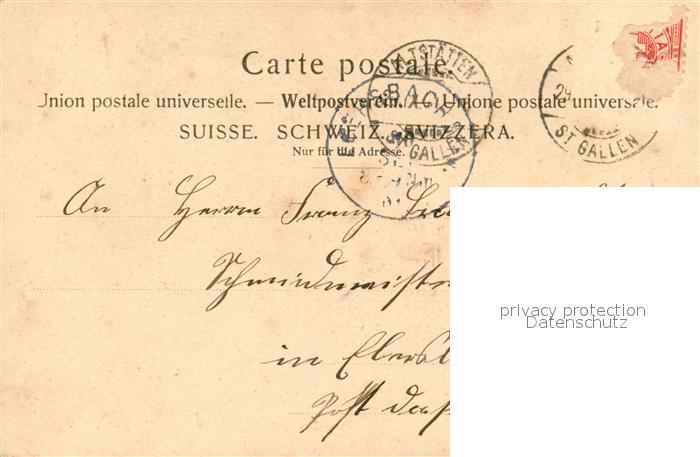 Carte postale.
Union postale universelle. — Weltpostverein. — Unione postale universale.
SUISSE. SCHWEIZ. SVIZZERA.
Nur für die Adresse.
ALTSTÄTTEN
ST. GALLEN
BACH
29
ST. GALLEN
An Herrn Franz
Schmidmeister
in
Post
privacy protection
Datenschutz